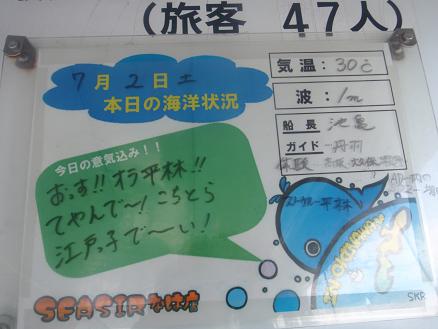 (旅客 47人)
7月2日土
本日の海洋状況
気温:30℃
波:1m
船長 池亀
ガイド 丹羽
体験
今日の意気込み!!
おっす!!オラ平林!!
てやんで〜!こちとら
江戸っ子で〜い!
平林
SEASIR なは店